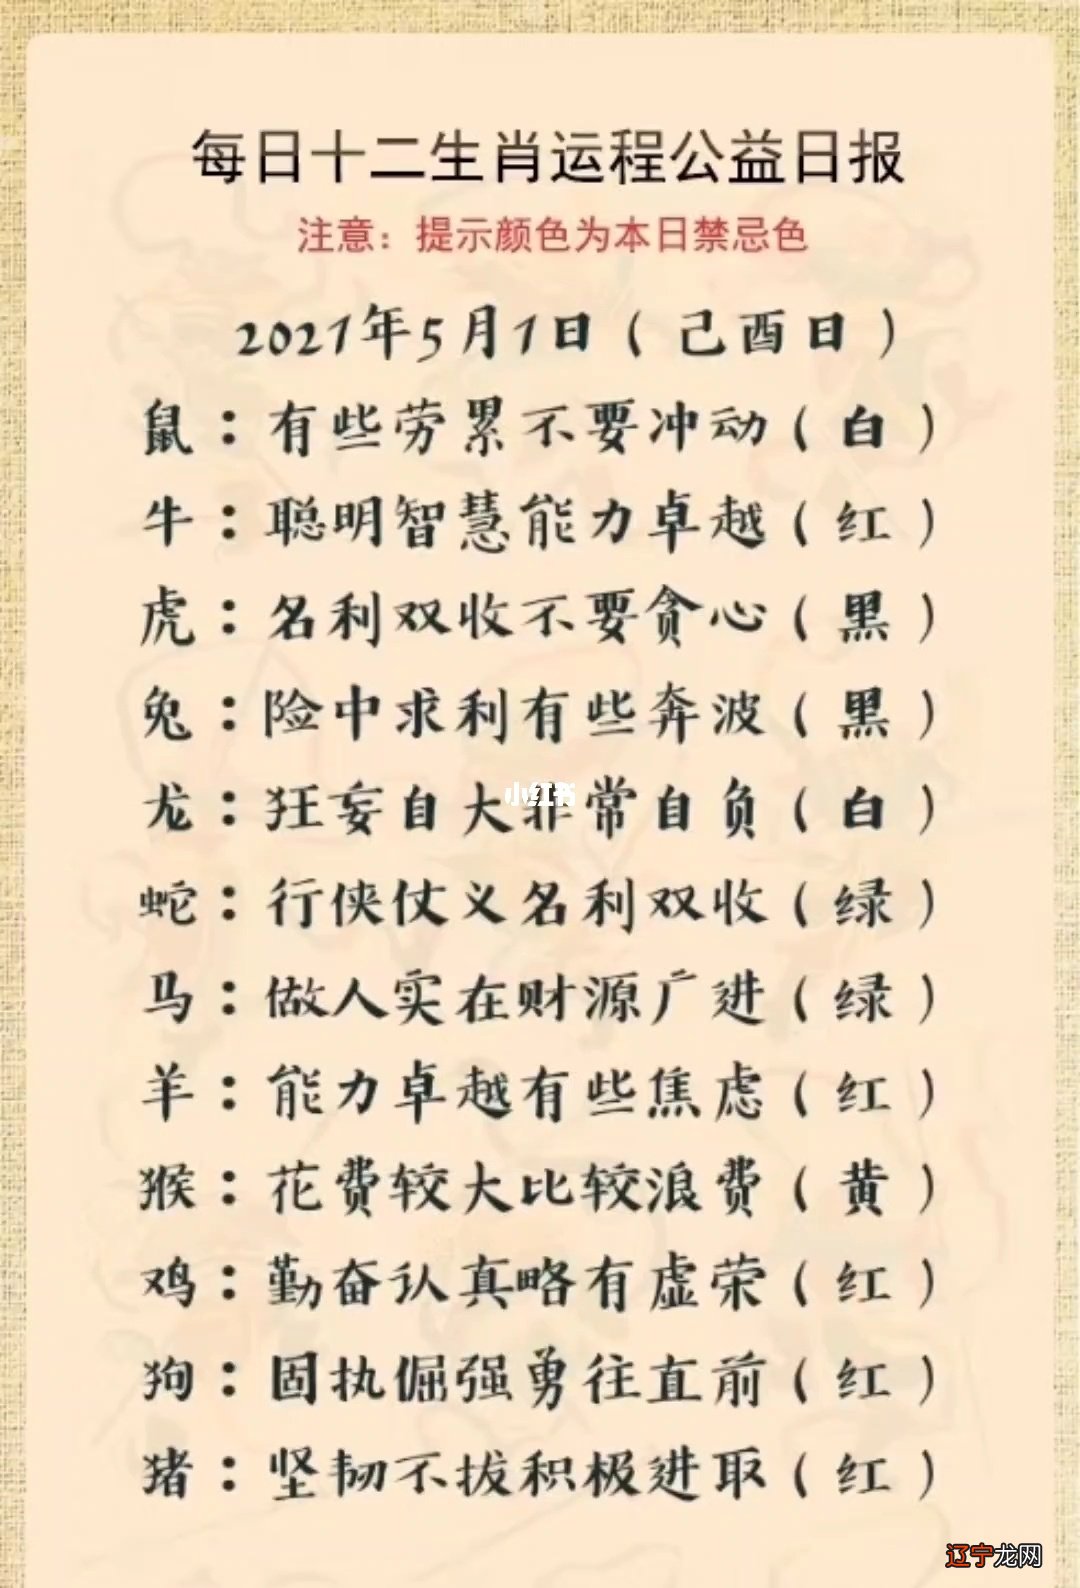 每日十二生肖运程公益日报
注意：提示颜色为本日禁忌色
2021年5月1日（己酉日）
鼠：有些劳累不要冲动（白）
牛：聪明智慧能力卓越（红）
虎：名利双收不要贪心（黑）
兔：险中求利有些奔波（黑）
龙：狂妄自大非常自负（白）
小红书
蛇：行侠仗义名利双收（绿）
马：做人实在财源广进（绿）
羊：能力卓越有些焦虑（红）
猴：花费较大比较浪费（黄）
鸡：勤奋认真略有虚荣（红）
狗：固执倔强勇往直前（红）
猪：坚韧不拔积极进取（红）
辽宁龙网